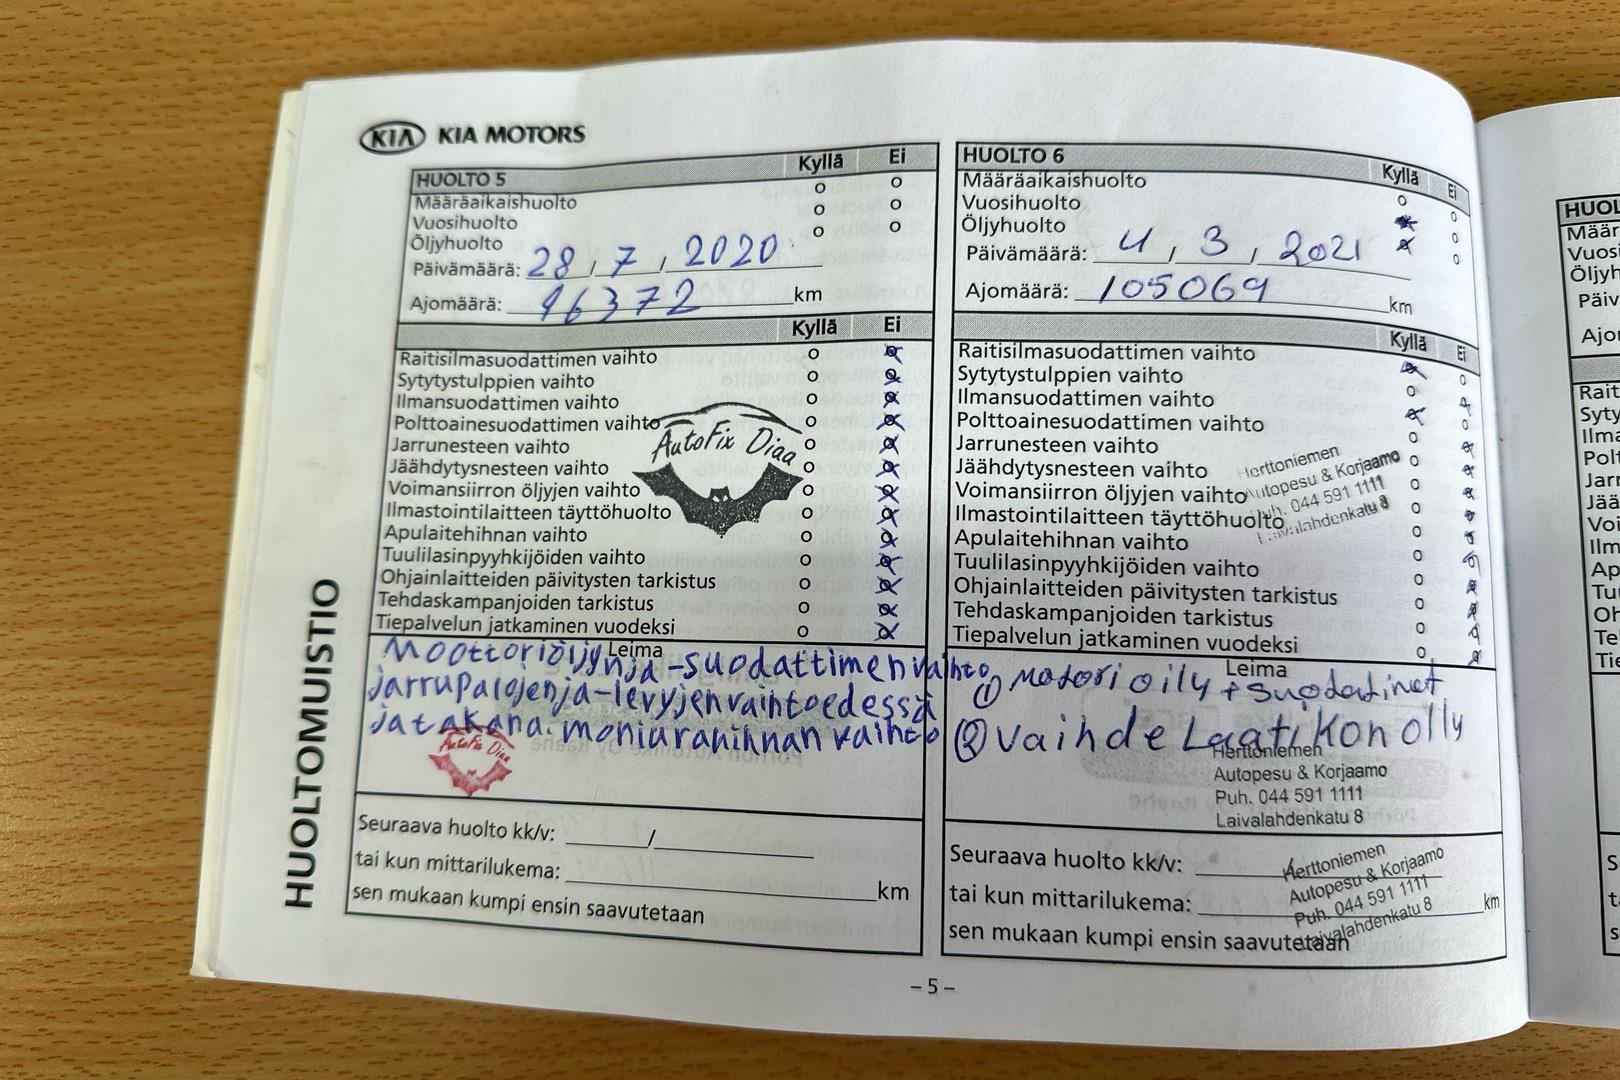 KIA KIA MOTORS
HUOLTO 5 Kyllä Ei
Määräaikaishuolto o o
Vuosihuolto o o
Öljyhuolto o o
Päivämäärä: 28 / 7 / 2020
Ajomäärä: 96372 km
Kyllä Ei
Raitisilmasuodattimen vaihto
Sytytystulppien vaihto
Ilmansuodattimen vaihto
Polttoainesuodattimen vaihto
Jarrunesteen vaihto
Jäähdytysnesteen vaihto
Voimansiirron öljyjen vaihto
Ilmastointilaitteen täyttöhuolto
Apulaitehihnan vaihto
Tuulilasinpyyhkijöiden vaihto
Ohjainlaitteiden päivitysten tarkistus
Tehdaskampanjoiden tarkistus
Tiepalvelun jatkaminen vuodeksi
AutoFix Diaa
Leima
Moottoriöljynja -suodattimen vaihto
jarrupalojenja-levyjenvaihtoedessä
jatakana. moniuranihnan vaihto
AutoFix Diaa
Seuraava huolto kk/v: /
tai kun mittarilukema: km
sen mukaan kumpi ensin saavutetaan
HUOLTO 6 Kyllä Ei
Määräaikaishuolto
Vuosihuolto
Öljyhuolto
Päivämäärä: 4 / 3 / 2021
Ajomäärä: 105069 km
Kyllä Ei
Raitisilmasuodattimen vaihto
Sytytystulppien vaihto
Ilmansuodattimen vaihto
Polttoainesuodattimen vaihto
Jarrunesteen vaihto
Jäähdytysnesteen vaihto
Voimansiirron öljyjen vaihto
Ilmastointilaitteen täyttöhuolto
Apulaitehihnan vaihto
Tuulilasinpyyhkijöiden vaihto
Ohjainlaitteiden päivitysten tarkistus
Tehdaskampanjoiden tarkistus
Tiepalvelun jatkaminen vuodeksi
Herttoniemen
Autopesu & Korjaamo
Puh. 044 591 1111
Laivalahdenkatu 8
Leima
① motori oily + suodatinet
② Vaihde Laatikon olly
Herttoniemen
Autopesu & Korjaamo
Puh. 044 591 1111
Laivalahdenkatu 8
Seuraava huolto kk/v:
tai kun mittarilukema: km
sen mukaan kumpi ensin saavutetaan
Herttoniemen
Autopesu & Korjaamo
Puh. 044 591 1111
Laivalahdenkatu 8
HUOLTOMUISTIO
– 5 –